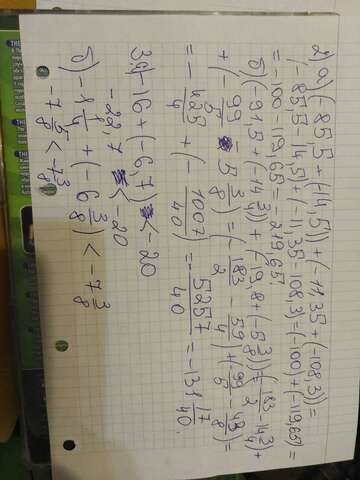 2) а) (-85,5 + (-14,5)) + (-11,35 + (-108,3)) =
(-85,5 - 14,5) + (-11,35 - 108,3) = (-100) + (-119,65) =
= -100 - 119,65 = -219,65
б) (-91,5 + (-14 3/4)) + (-19,8 + (-5 3/8)) = (-183/2 - 14 3/4) +
+ (-99/5 - 5 3/8) = (-183/2 - 59/4) + (-99/5 - 43/8) =
= -425/4 + (-1007/40) = -5257/40 = -131 17/40
3. а) -16 + (-6,7) < -20
-22,7 < -20
б) -1 1/4 + (-6 3/8) < -7 3/8
-7 5/8 < -7 3/8